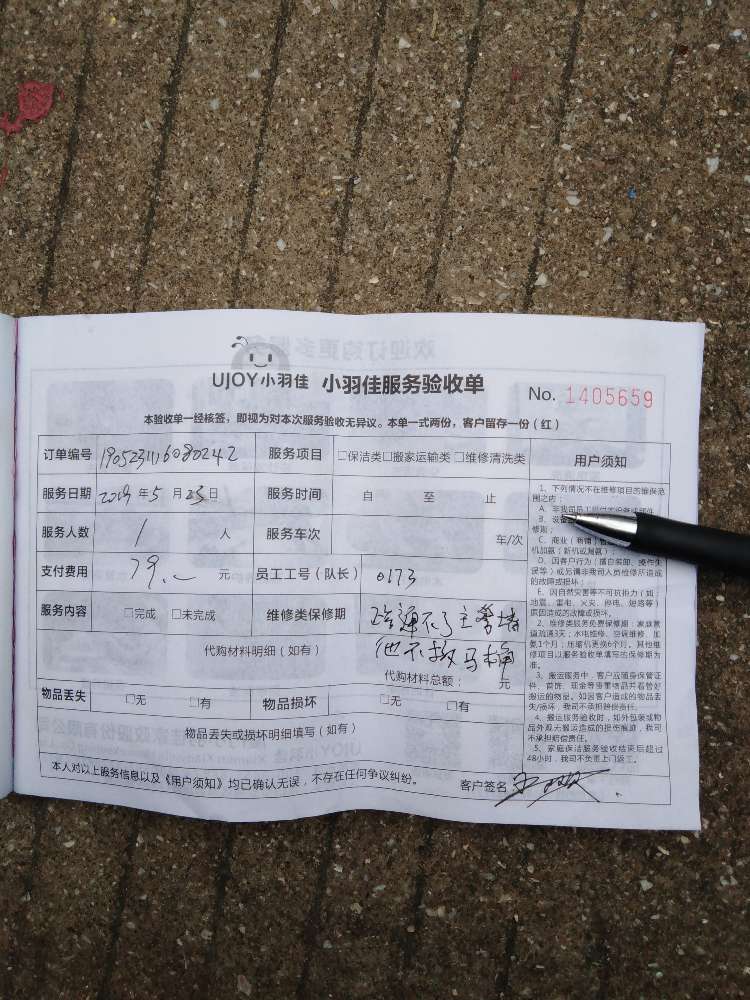 UJOY小羽佳 小羽佳服务验收单 No. 1405659
本验收单一经核签，即视为对本次服务验收无异议。本单一式两份，客户留存一份（红）
订单编号 服务项目 □保洁类□搬家运输类 □维修清洗类 用户须知
服务日期 2019年5月23日 服务时间 自 至 止
服务人数 1 人 服务车次 车/次
支付费用 79.- 元 员工工号（队长） 0173
服务内容 □完成 □未完成 维修类保修期 不了主管堵
代购材料明细（如有） 他不拔马桶
代购材料总额： 元
物品丢失 □无 □有 物品损坏 □无 □有
物品丢失或损坏明细填写（如有）
本人对以上服务信息以及《用户须知》均已确认无误，不存在任何争议纠纷。 客户签名：
1、下列情况不在维修项目的维保范
围之内：
B、设备
修期；
C、商业（商铺）
机加氨（新机或漏氨）；
等）或另请非我司人员检修所造成
的故障或损坏；
E、因自然灾害等不可抗拒力（如
地震、雷电、火灾、停电、短路等）
原因造成的故障或损坏。
2、维修类服务免费保修期：家庭管
道疏通3天；水电维修、空调维修、加
氨1个月；压缩机更换6个月。其他维
修项目以服务验收单填写的保修期为
准。
3、搬运服务中，客户应随身保管证
件、首饰、现金等贵重物品并看管好
搬运的物品。如因客户造成的物品丢
失/损坏，我司不承担赔偿责任。
4、搬运服务验收时，如外包装或物
品外观无搬运造成的损伤痕迹，我司
不承担赔偿责任。
5、家庭保洁服务验收结束后超过
48小时，我司不负责上门返工。